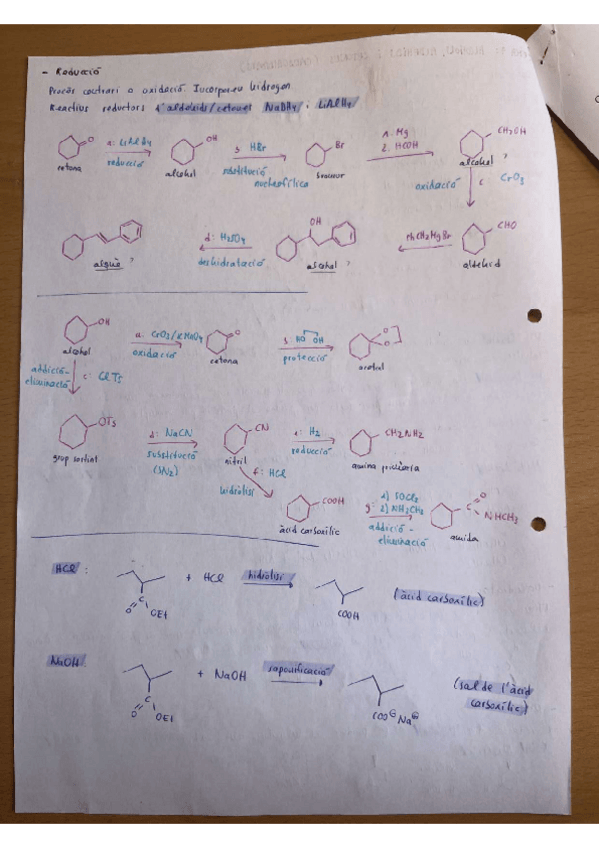 - Reducció
Procés contrari a oxidació. Incorporeu hidrogen
Reactius reductors d'aldehids/cetones NaBH4 i LiAlH4
O a: LiAlH4 OH b: HBr Br 1. Mg CH2OH
reducció substitució nucleofílica 2. HCOH
cetona alcohol bromur alcohol
oxidació c: CrO3
d: H2SO4 OH PhCH2MgBr CHO
deshidratació
alquè alcohol aldehid
OH a: CrO3/KMnO4 O b: HO OH O O
oxidació protecció
alcohol cetona acetal
addició-eliminació c: ClTs
OTs d: NaCN CN e: H2 CH2NH2
substitució (SN2) reducció
grup sortint nitril amina primària
hidròlisi f: HCl
COOH g: 1) SOCl2 C O
2) NH2CH3 NHCH3
àcid carboxílic addició-eliminació amida
HCl: + HCl hidròlisi (àcid carboxílic)
O C OEt COOH
NaOH: + NaOH saponificació (sal de l'àcid
carboxílic)
O C OEt COO⊖ Na⊕